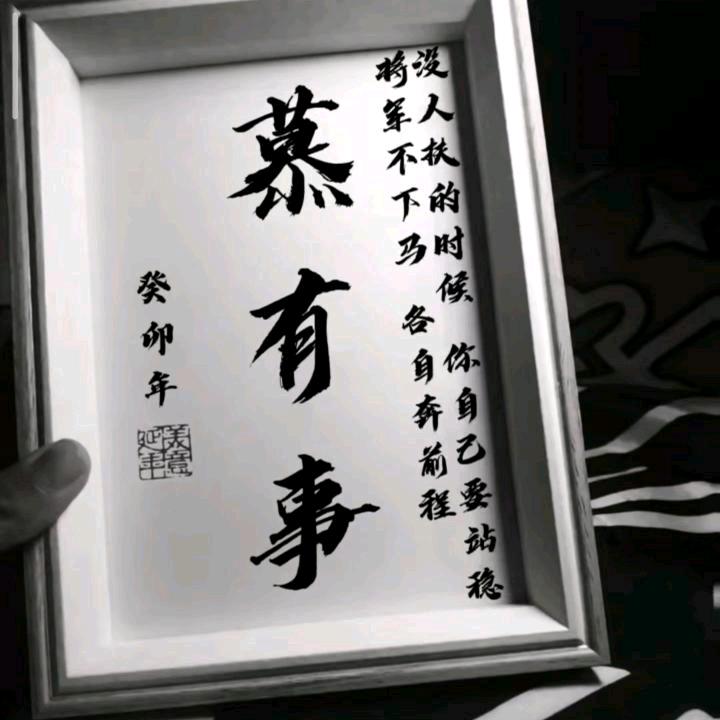 没人扶的时候 你自己要站稳
将军不下马 各自奔前程
慕有事
癸卯年
美意延年